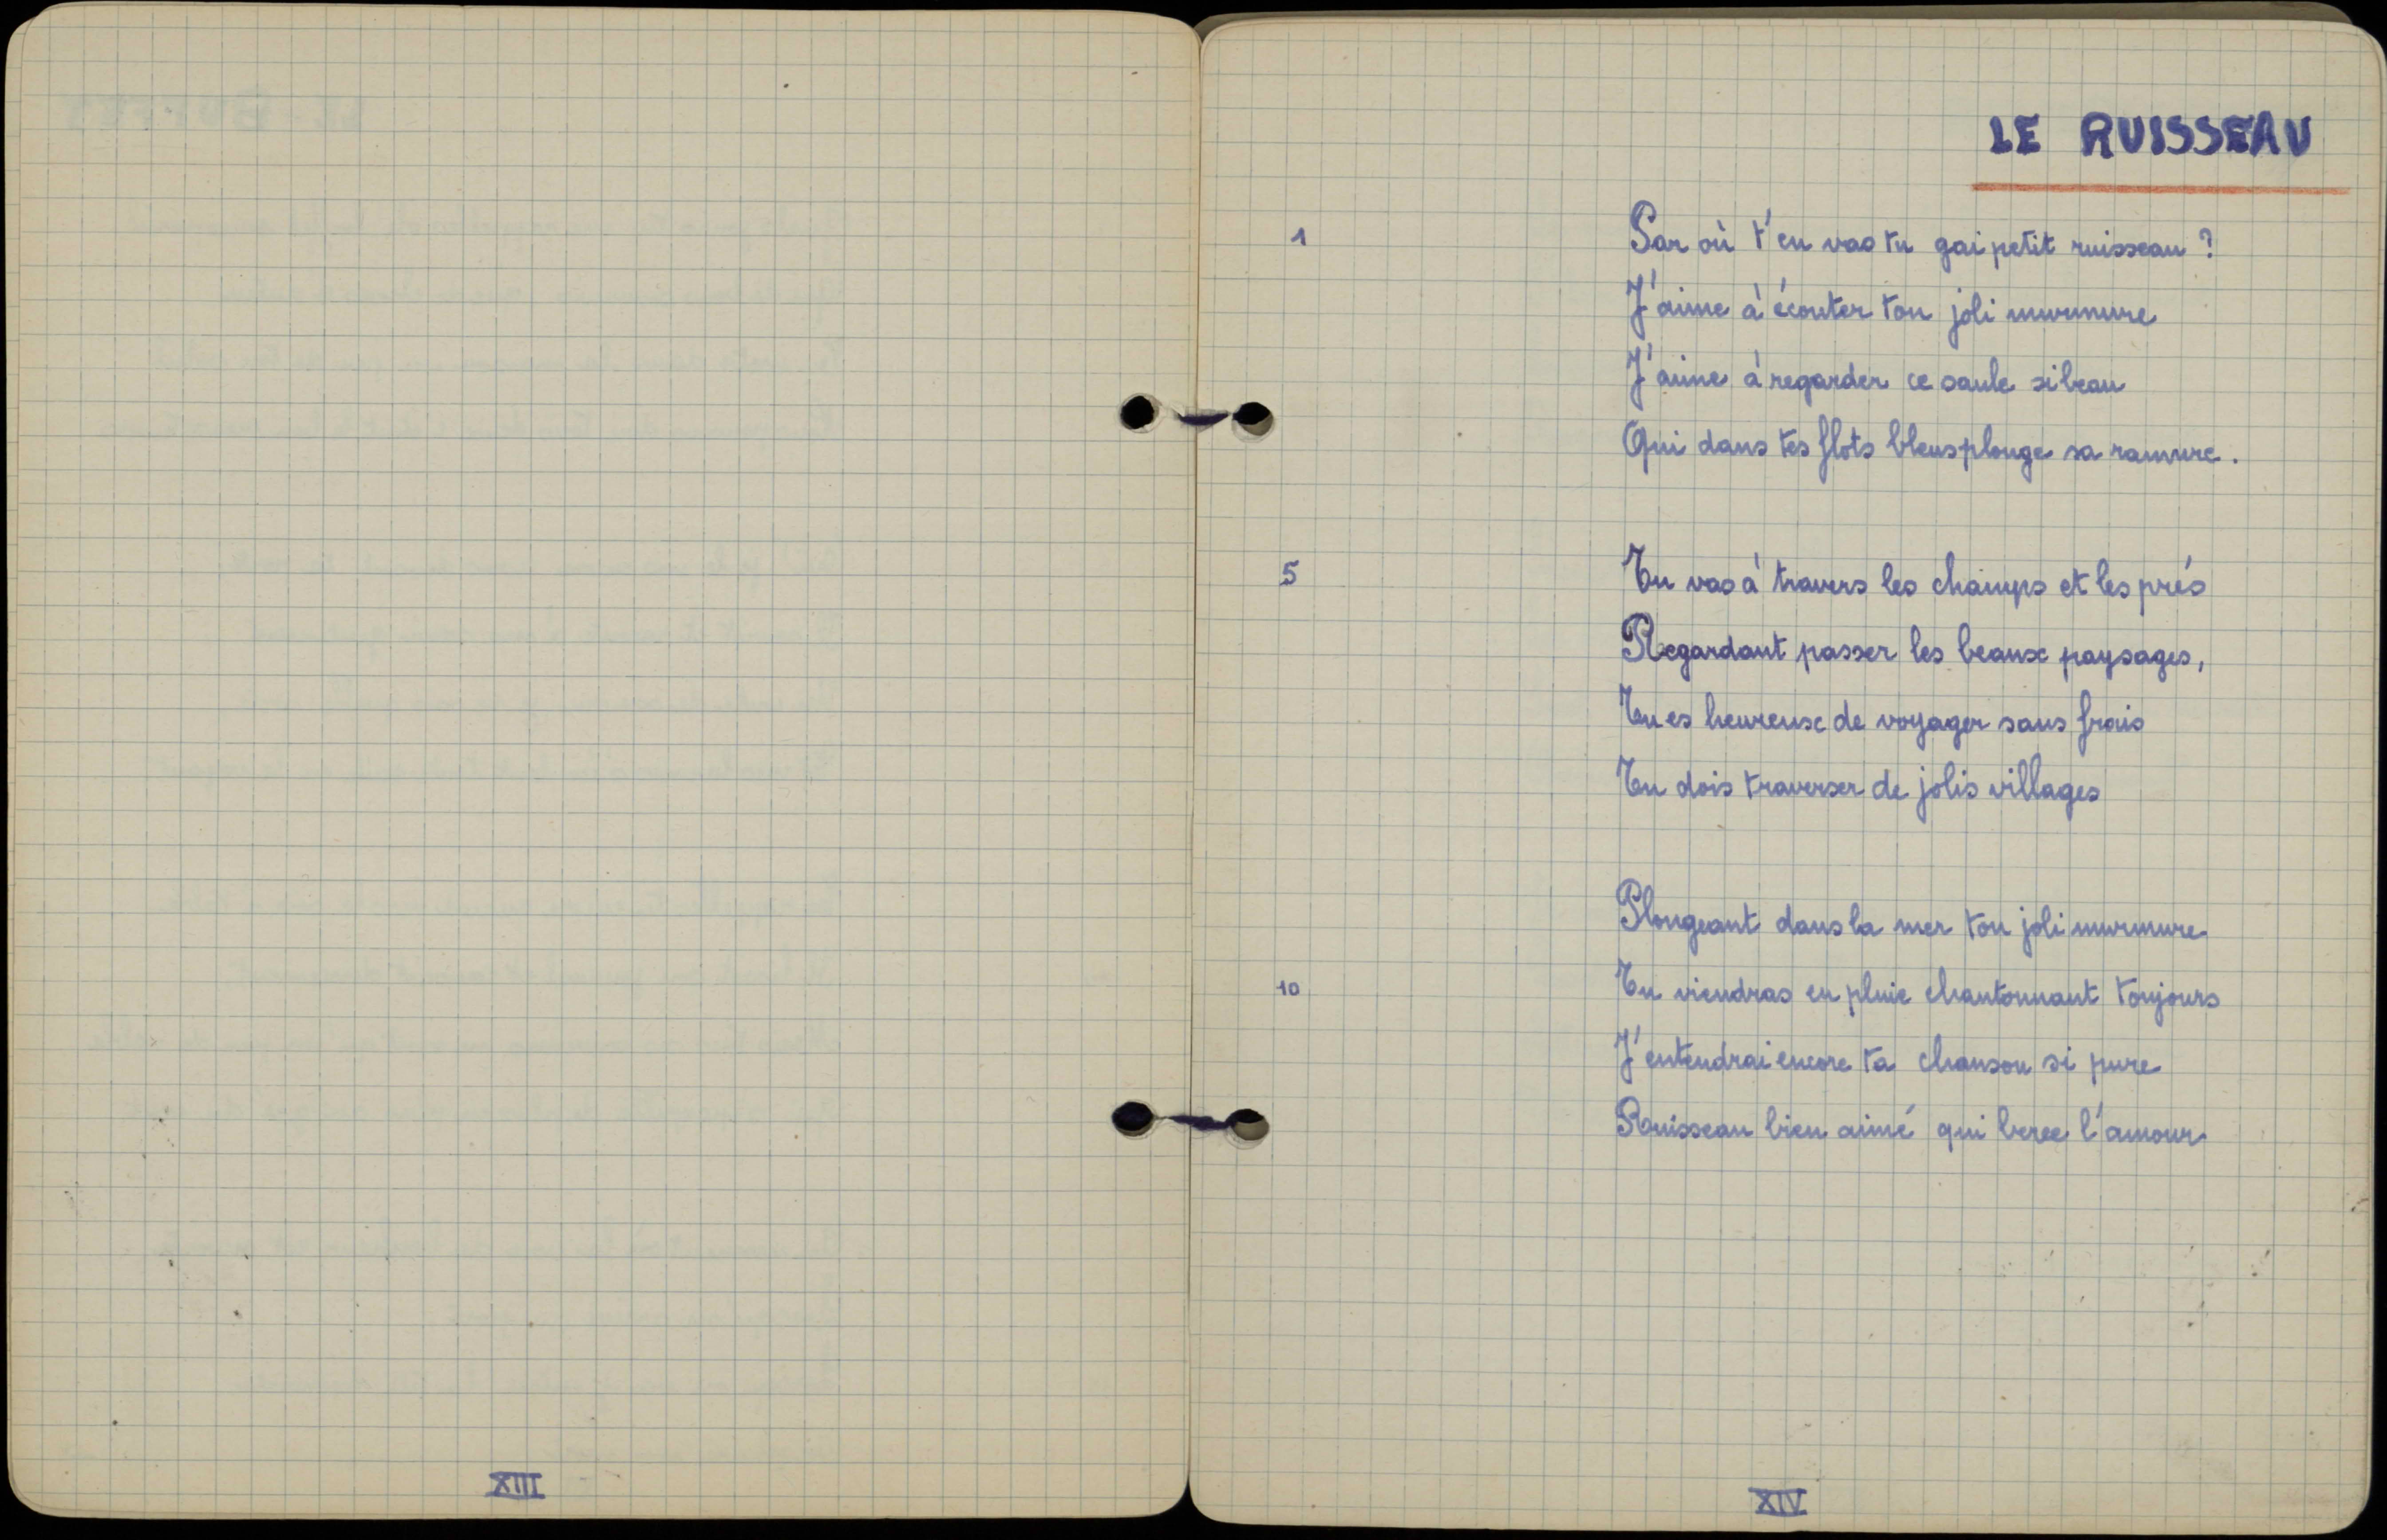 XIII
LE RUISSEAU
1 Par où t'en vas tu gai petit ruisseau ?
J'aime à écouter ton joli murmure
J'aime à regarder ce saule si beau
Qui dans tes flots bleus plonge sa ramure.
5 Tu vas à travers les champs et les prés
Regardant passer les beaux paysages,
Tu es heureux de voyager sans frais
Tu dois traverser de jolis villages
Plongeant dans la mer ton joli murmure
10 Tu viendras en pluie chantonnant toujours
J'entendrai encore ta chanson si pure
Ruisseau bien aimé qui berce l'amour
XIV